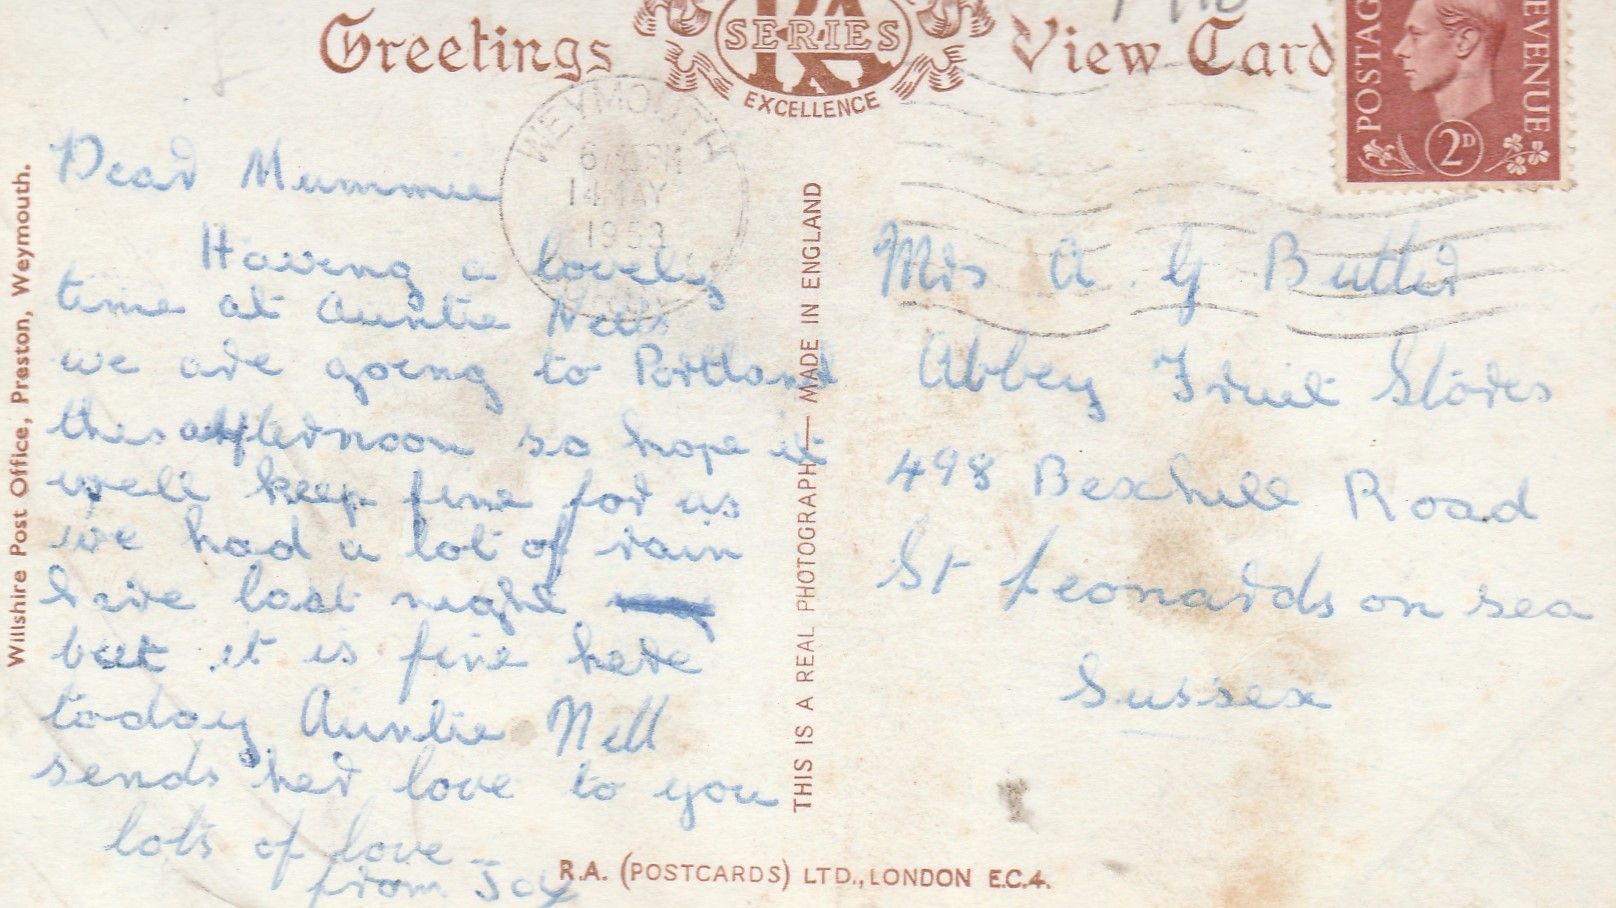 Greetings
SERIES
EXCELLENCE
View Card
POSTAGE
REVENUE
2D
WEYMOUTH
PM
14 MAY
1953
Willshire Post Office, Preston, Weymouth.
Dear Mummie
Having a lovely
time at Auntie Nells
we are going to Portland
this afternoon so hope it
well keep fine for us
we had a lot of rain
here last night
but it is fine here
today Auntie Nell
sends her love to you
lots of love -
from Joy
THIS IS A REAL PHOTOGRAPH — MADE IN ENGLAND
Mrs A. G Butler
Abbey Fruit Stores
498 Bexhill Road
St Leonards on sea
Sussex
R.A. (POSTCARDS) LTD., LONDON E.C.4.